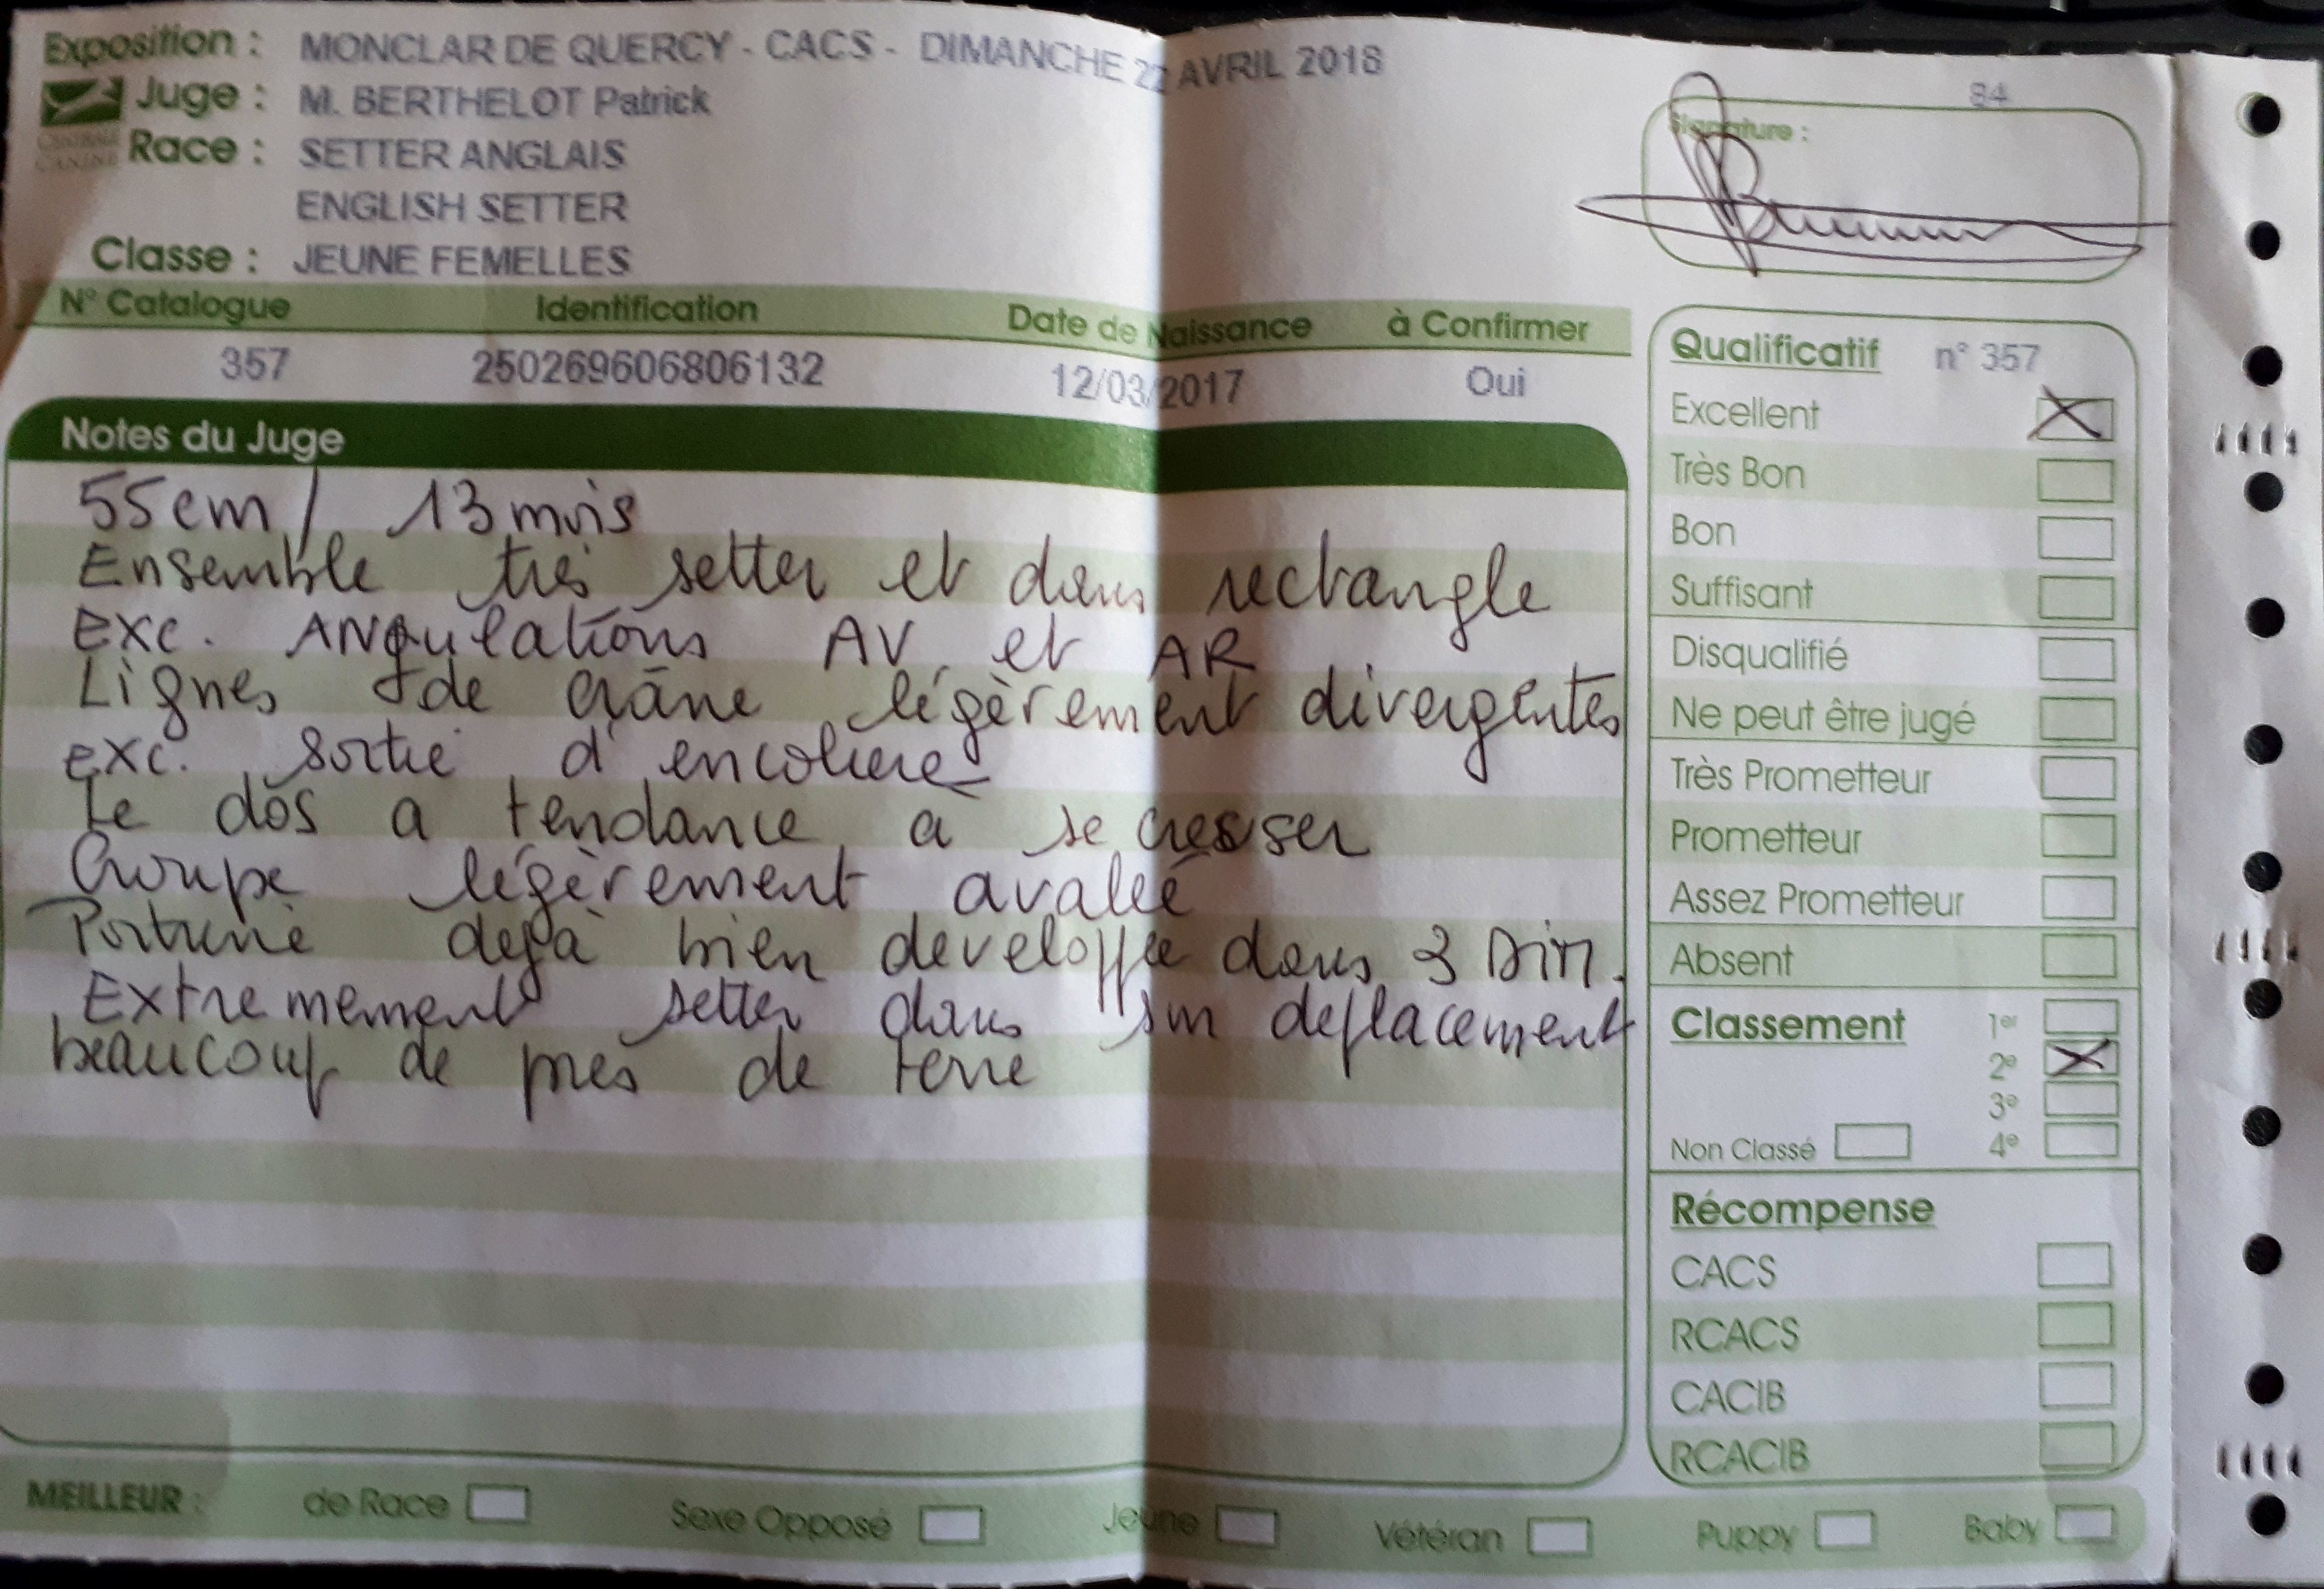 Exposition : MONCLAR DE QUERCY - CACS - DIMANCHE 22 AVRIL 2018
84
Juge : M. BERTHELOT Patrick
CENTRALE CANINE
Race : SETTER ANGLAIS
ENGLISH SETTER
Classe : JEUNE FEMELLES
Signature :
N° Catalogue Identification Date de Naissance à Confirmer
357 250269606806132 12/03/2017 Oui
Notes du Juge
55cm / 13 mois
Ensemble très setter et dans rectangle
exc. ANgulations AV et AR
Lignes de crâne légèrement divergentes
exc. sortie d'encolure
Le dos a tendance à se creuser
Croupe légèrement avalée
Poitrine dejà bien developpée dans 3 Dim.
Extremement setter dans son deplacement
beaucoup de près de terre
Qualificatif n° 357
Excellent
Très Bon
Bon
Suffisant
Disqualifié
Ne peut être jugé
Très Prometteur
Prometteur
Assez Prometteur
Absent
Classement 1er
2e
3e
Non Classé 4e
Récompense
CACS
RCACS
CACIB
RCACIB
MEILLEUR : de Race Sexe Opposé Jeune Vétéran Puppy Baby